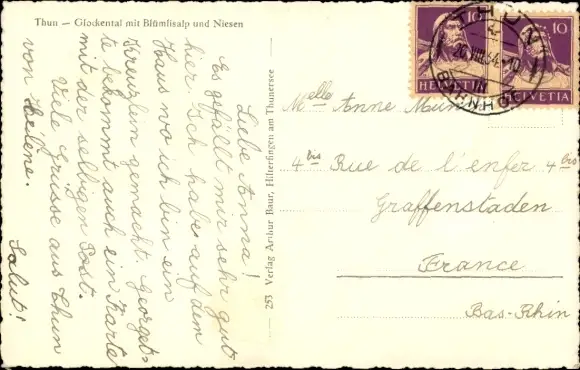 Thun – Glockental mit Blümlisalp und Niesen
Liebe Anna!
Es gefällt mir sehr gut
hier. Ich habe auf dem
Haus wo ich bin ein
Kreuzlein gemacht. Georget-
te bekommt auch ein Karte
mit der selbigen Post.
Viele Grüsse aus Thun
von Helene.
Salut!
253 Verlag Arthur Baur, Hilterfingen am Thunersee
THUN
BAHNHOF
10
HELVETIA
10
HELVETIA
Melle Anne
4bis Rue de l'enfer 4bis
Graffenstaden
France
Bas-Rhin